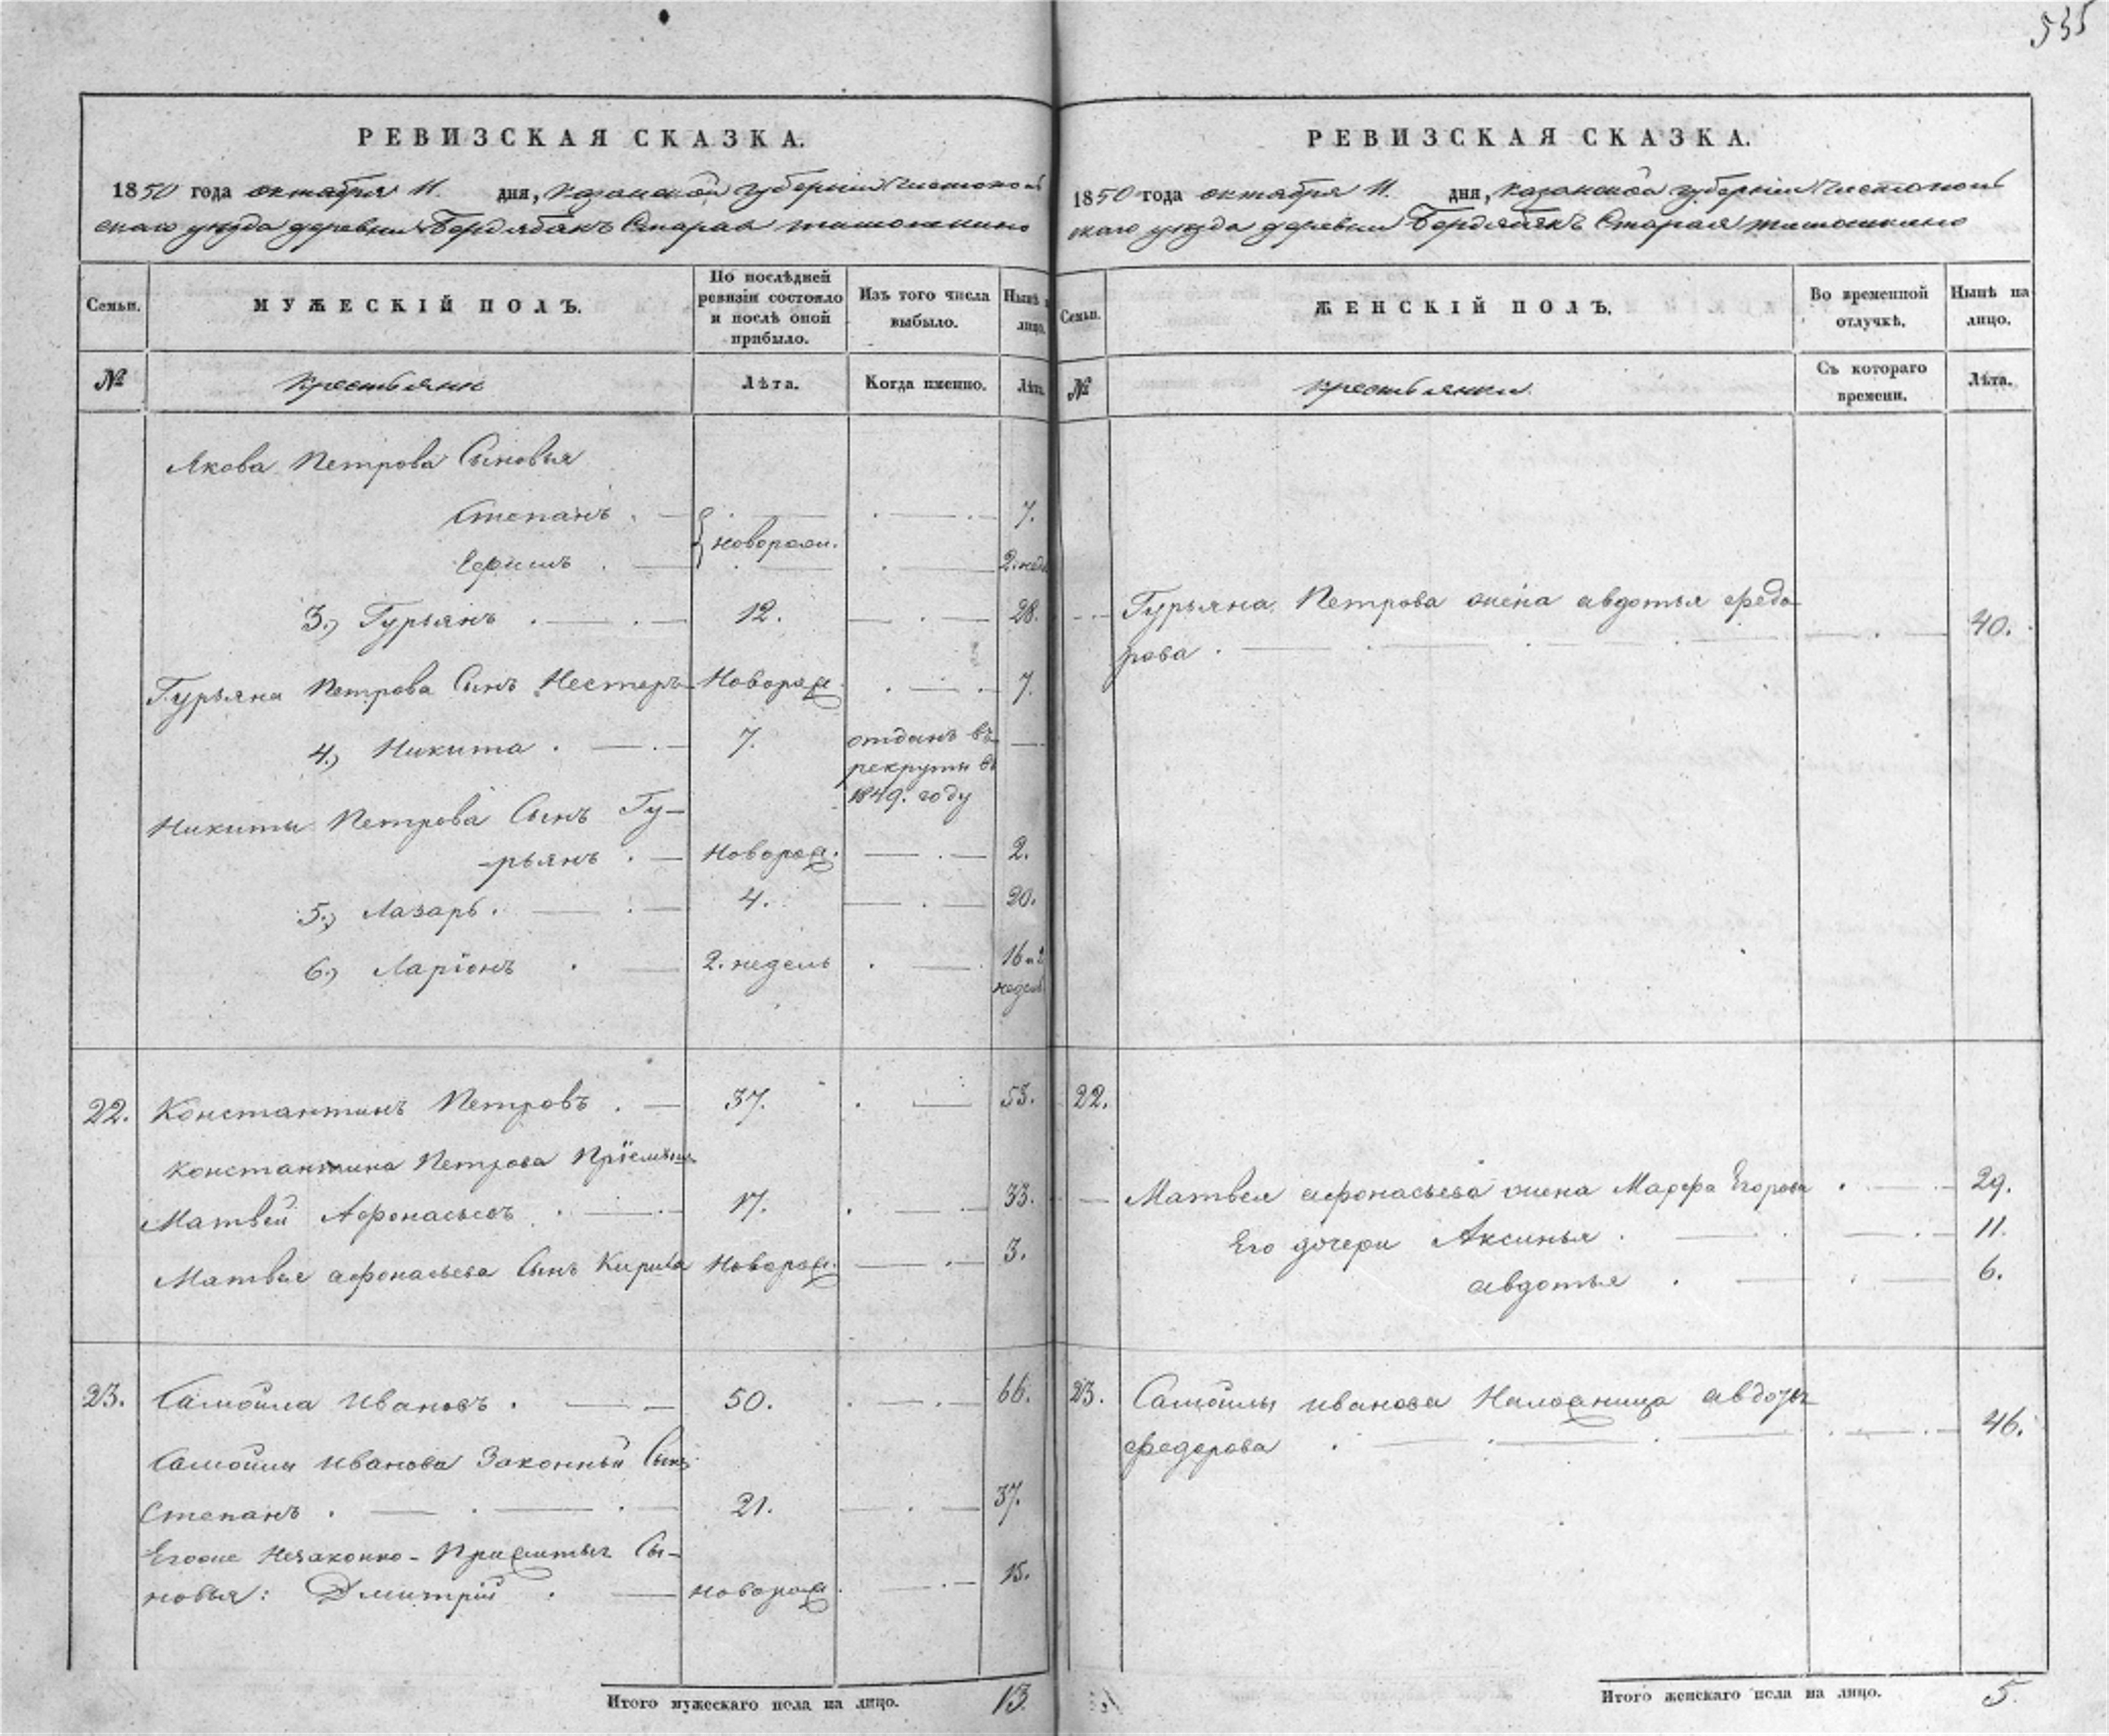 535
РЕВИЗСКАЯ СКАЗКА.
1850 года октября 11. дня, Казанской губернiи Чистополь
скаго уезда деревни Бердябякъ Старая тимошкино
Семьи.
МУЖЕСКІЙ ПОЛЪ.
По послѣдней ревизіи состояло и послѣ оной прибыло.
Изъ того числа выбыло.
Нынѣ на лицо.
№
крестьяне
Лѣта.
Когда именно.
Лѣта.
Якова Петрова Сыновья
Степанъ . — 7.
{ новорожд.
Ефимъ . — 2. неде
3.) Гурьянъ . — 12. — 28.
Гурьяна Петрова Сынъ Нестеръ Новорож. — 7.
4.) Никита . — 7. отданъ въ —
рекруты въ
1849. году
Никиты Петрова Сынъ Гу-
-рьянъ . — Новорож. — 2.
5.) Лазарь . — 4. — 20.
6.) Ларіонъ . — 2. недель — 16 и 2
недель
22. Константинъ Петровъ . — 37. — 53.
Константина Петрова Пріемышъ
Матвей Афонасьевъ . — 17. — 33.
Матвея афонасьева Сынъ Кирила Новорож. — 3.
23. Самойла Ивановъ . — 50. — 66.
Самойлы Иванова Законный Сынъ
Степанъ . — 21. — 37.
Егоже Незаконно-Прижитыя Сы-
новья: Дмитрій . — новорож. — 15.
Итого мужескаго пола на лицо. 13
РЕВИЗСКАЯ СКАЗКА.
1850 года октября 11. дня, Казанской губернiи Чистополь
скаго уезда деревни Бердябякъ Старая тимошкино
Семьи.
ЖЕНСКІЙ ПОЛЪ.
Во временной отлучкѣ.
Нынѣ на лицо.
№
крестьянки
Съ котораго времени.
Лѣта.
Гурьяна Петрова жена авдотья федо-
рова . — 40.
22.
Матвея афонасьева жена Марфа Егорова . — 29.
Его дочери Аксинья . — 11.
авдотья . — 6.
23. Самойлы иванова Наложница авдотья
федорова . — 46.
Итого женскаго пола на лицо. 5.